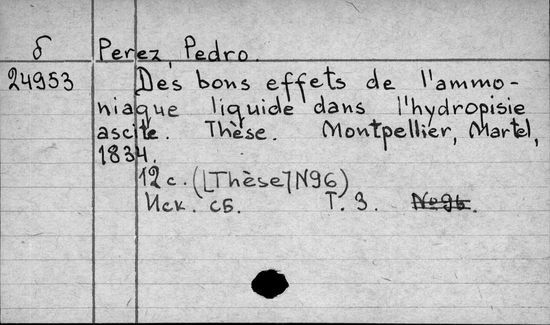 δ Perez, Pedro.
24953 Des bons effets de l'ammo-
niaque liquide dans l'hydropisie
ascite. Thèse. Montpellier, Martel,
1834.
12 с. ([Thèse] N96)
Иск. сб. Т. 3. №96.